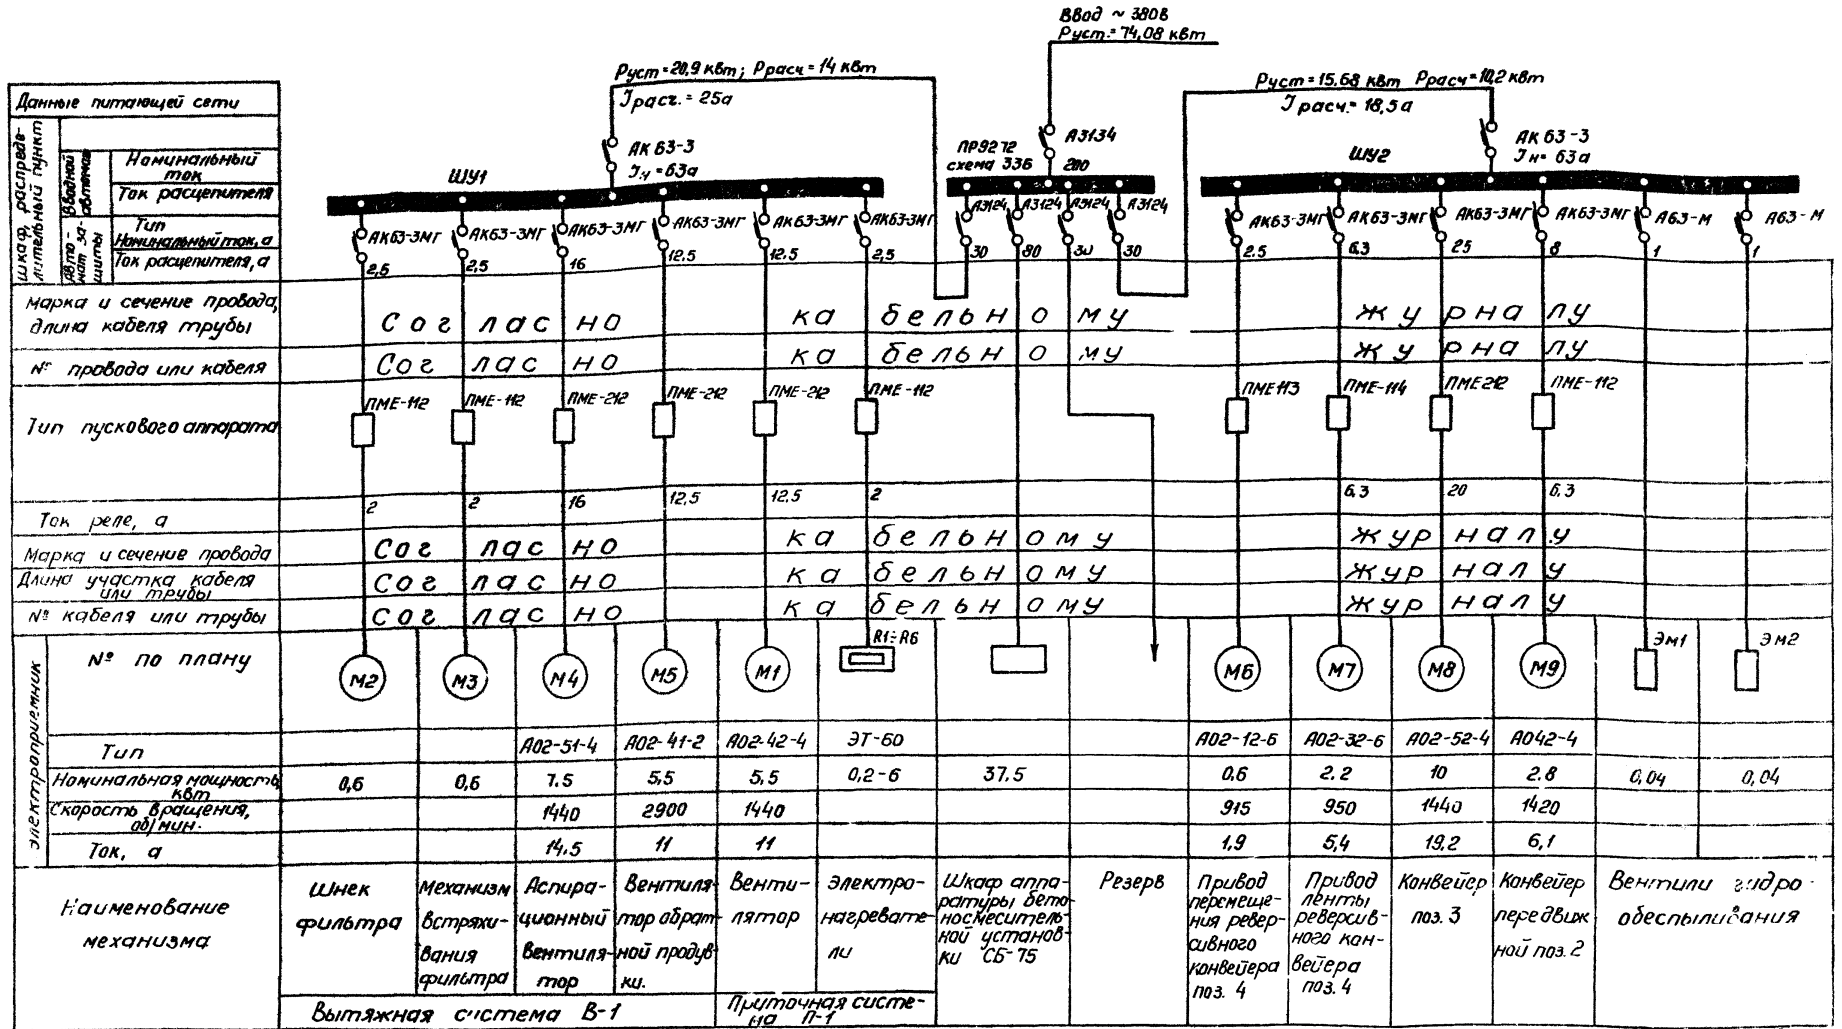 Ввод ~ 380в
Руст.= 74,08 квт
Руст = 20,9 квт; Ррасч = 14 квт
Iрасч. = 25а
Руст = 15.68 квт Ррасч = 10,2 квт
Iрасч. = 18,5 а
Данные питающей сети
шкаф, распреде-
лительный пункт
Вводной
автомат
Номинальный
ток
Ток расцепителя
Авто-
мат за-
щиты
Тип
Номинальный ток, а
Ток расцепителя, а
ШУ1
АК 63-3
Iн = 63а
ПР9272
схема 336
А3134
200
ШУ2
АК 63-3
Iн = 63а
АК63-3МГ АК63-3МГ АК63-3МГ АК63-3МГ АК63-3МГ АК63-3МГ А3124 А3124 А3124 А3124 АК63-3МГ АК63-3МГ АК63-3МГ АК63-3МГ А63-М А63-М
2,5 2,5 16 12.5 12.5 2,5 30 80 30 30 2.5 6,3 25 8 1 1
Марка и сечение провода,
длина кабеля трубы
Согласно кабельному журналу
№ провода или кабеля
Согласно кабельному журналу
Тип пускового аппарата
ПМЕ-112 ПМЕ-112 ПМЕ-212 ПМЕ-212 ПМЕ-212 ПМЕ-112 ПМЕ113 ПМЕ-114 ПМЕ212 ПМЕ-112
Ток реле, а
2 2 16 12,5 12.5 2 6,3 20 6,3
Марка и сечение провода
Согласно кабельному журналу
Длина участка кабеля
или трубы
Согласно кабельному журналу
№ кабеля или трубы
Согласно кабельному журналу
электроприемник
№ по плану
М2 М3 М4 М5 М1 R1÷R6 М6 М7 М8 М9 ЭМ1 ЭМ2
Тип
А02-51-4 А02-41-2 А02-42-4 ЭТ-60 А02-12-6 А02-32-6 А02-52-4 А042-4
Номинальная мощность,
квт
0,6 0,6 7.5 5,5 5,5 0,2-6 37.5 0,6 2.2 10 2.8 0,04 0,04
Скорость вращения,
об/мин.
1440 2900 1440 915 950 1440 1420
Ток, а
14.5 11 11 1,9 5,4 19,2 6,1
Наименование
механизма
Шнек
фильтра
Механизм
встряхи-
вания
фильтра
Аспира-
ционный
вентиля-
тор
Вентиля-
тор обрат-
ной продув-
ки.
Венти-
лятор
Электро-
нагревате-
ли
Шкаф аппа-
ратуры бето-
носмеситель-
ной установ-
ки СБ-75
Резерв
Привод
перемеще-
ния ревер-
сивного
конвейера
поз. 4
Привод
ленты
реверсив-
ного кон-
вейера
поз. 4
Конвейер
поз. 3
Конвейер
передвиж
ной поз. 2
Вентили гидро-
обеспыливания
Вытяжная система В-1
Приточная систе-
ма П-1